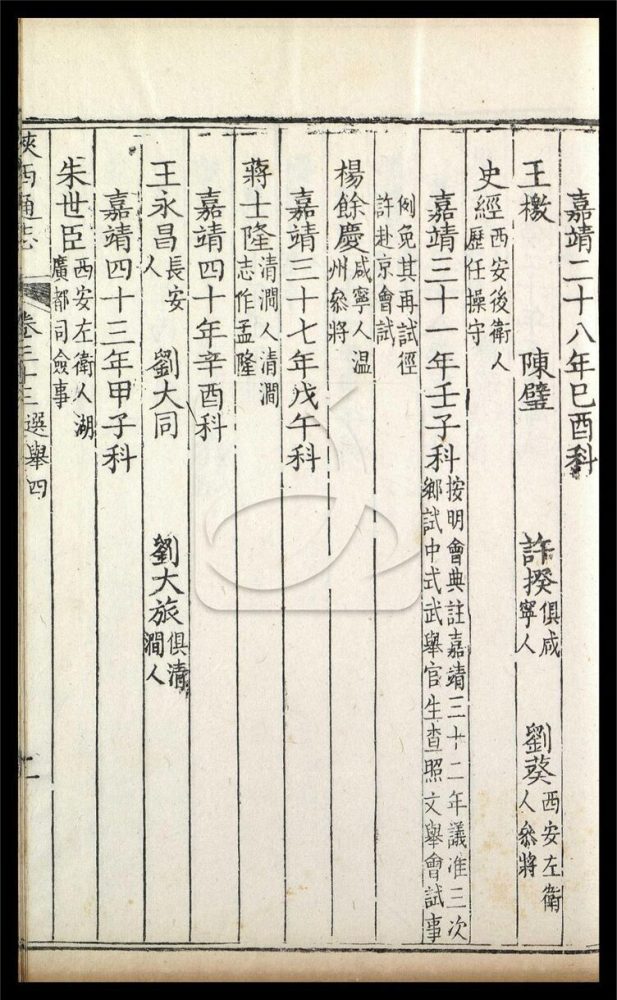 嘉靖二十八年巳酉科
王檄　陳璧　許揆俱咸寧人　劉葵西安左衛人叅將
史經西安後衛人歷任操守
嘉靖三十一年壬子科按明會典註嘉靖三十二年議准三次鄉試中式武舉官生查照文舉會試事
例免其再試徑許赴京會試
楊餘慶咸寧人温州叅將
嘉靖三十七年戊午科
蔣士隆清澗人清澗志作孟隆
嘉靖四十年辛酉科
王永昌長安人　劉大同　劉大旅俱清澗人
嘉靖四十三年甲子科
朱世臣西安左衛人湖廣都司僉事
陜西通志　卷三十三　選舉四